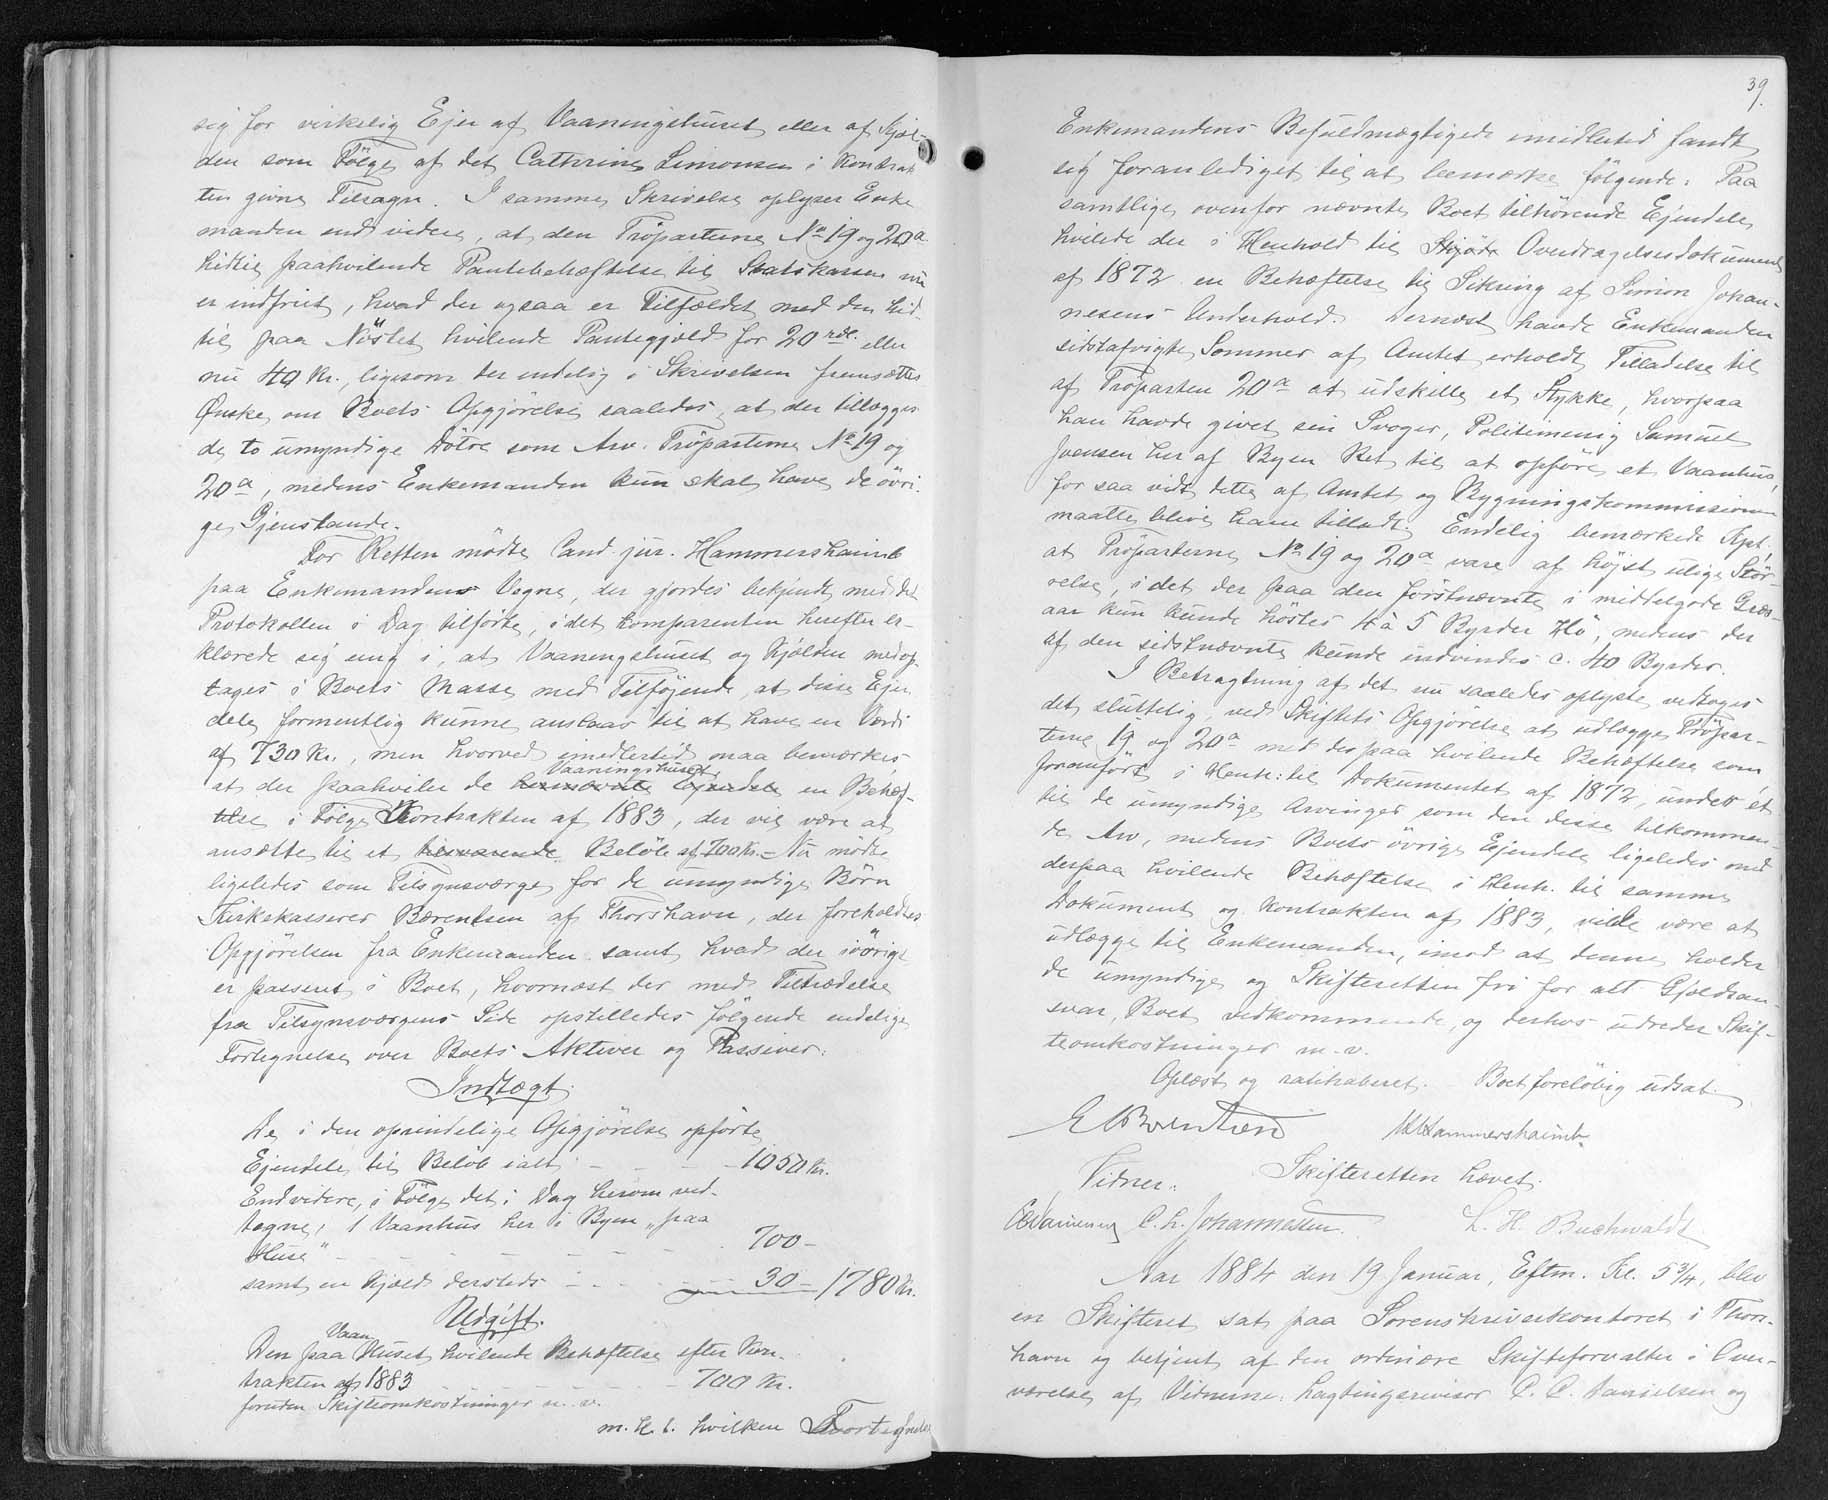 sig for virkelig Ejer af Vaaningshuset eller af Kjæl-
den som Følge af det Cathrine Simonsen i Kontrak
ten givne Tilsagn. I samme Skrivelse oplyser Enke
manden endvidere, at den Tröparterne No 19 og 20a
hidtil paahvilende Pantebehæftelse til Statskassen nu
er indfriet, hvad der ogsaa er Tilfældet med den hid-
til paa Nöstet hvilende Pantegjæld for 20 rdl. eller
nu 40 Kr., ligesom der endelig i Skrivelsen fremsættes
Ønske om Boets Opgjörelse saaledes, at der tillægges
de to umyndige Dötre som Arv Tröparterne No 19 og
20a, medens Enkemanden kun skal have de övri-
ge Gjenstande.
For Retten mödte Cand. jur. Hammershaimb
paa Enkemandens Vegne, der gjordes bekjendt med det
Protokollen i Dag tilförte, idet Komparenten herefter er-
klærede sig enig i, at Vaaningshuset og Kjælden medop-
tages i Boets Masse med Tilföjende, at disse Ejen
dele formentlig kunne anslaas til at have en Værdi
af 730 Kr., men hvorved imedlertid maa bemærkes,
Vaaningshuset
at der paahviler de bemeldte Ejendele en Behæf-
telse i Følge Kontrakten af 1883, der vil være at
ansætte til et tilsvarende Belöb af 700 Kr. – Nu mödte
ligeledes som Tilsynsværge for de umyndige Börn
Kirkekasserer Bærentsen af Thorshavn, der foreholdtes
Opgjörelsen fra Enkemanden samt hvad der iövrigt
er passeret i Boet, hvornæst der med Tiltrædelse
fra Tilsynsværgens Side opstilledes fölgende endelige
Fortegnelse over Boets Aktiver og Passiver:
Indtægt.
De i den oprindelige Opgjörelse opförte
Ejendele til Belöb ialt - - - 1050 Kr.
Endvidere, i Følge det i Dag herom ved-
tagne, 1 Vaanhus her i Byen "paa
Huse" - - - - - 700 -
samt en Kjæld dersteds - - - 30 - 1780 Kr.
Udgift.
Vaan
Den paa Huset hvilende Behæftelse efter Kon-
trakten af 1883 - - - 700 Kr.
foruden Skifteomkostninger m. v.
m. H. t. hvilken Fortegnelse
39.
Enkemandens Befuldmægtigede imidlertid fandt
sig foranlediget til at bemærke fölgende: Paa
samtlige ovenfor nævnte Boet tilhörende Ejendele
hvilede der i Henhold til Skjöde Overdragelsesdokument
af 1872 en Behæftelse til Sikring af Simon Johan-
nesens Underhold. Dernæst havde Enkemanden
sidstafvigte Sommer af Amtet erholdt Tilladelse til
af Tröparten 20a at udskille et Stykke, hvorpaa
han havde givet sin Svoger, Politimenig Samuel
Joensen her af Byen Ret til at opföre et Vaanhus,
for saa vidt dette af Amtet og Bygningskommissionen
maatte blive ham tilladt. Endelig bemærkede Kpt.,
at Tröparterne No 19 og 20a vare af höjst ulige Stör-
relse, idet der paa den förstnævnte i middelgode Græs-
aar kun kunde höstes 4 à 5 Byrder Hö, medens der
af den sidstnævnte kunde indvindes c. 40 Byrder.
I Betragtning af det nu saaledes oplyste vedtoges
det sluttelig, ved Skiftets Opgjörelse at udlægge Tröpar-
terne 19 og 20a med derpaa hvilende Behæftelse som
foranfört i Henh: til Dokumentet af 1872, under ét
til de umyndige Arvinger som den disse tilkommen-
de Arv, medens Boets övrige Ejendele ligeledes med
derpaa hvilende Behæftelse i Henh. til samme
Dokument og Kontrakten af 1883, vilde være at
udlægge til Enkemanden, imod at denne holder
de umyndige og Skifteretten fri for alt Gjældsan-
svar, Boet vedkommende, og derhos udreder Skif-
teomkostninger m. v.
Oplæst og ratihaberet. Boet foreløbig udsat.
E Bærentsen Hammershaimb
Skifteretten hævet.
Vidner:
Danielsen C. L. Johannesen. L. H. Buchwaldt
Aar 1884 den 19 Januar, Eftm. Kl. 5 3/4, blev
en Skifteret sat paa Sorenskriverkontoret i Thors-
havn og betjent af den ordinære Skifteforvalter i Over-
værelse af Vidnerne: Lagtingsrevisor C. C. Danielsen og